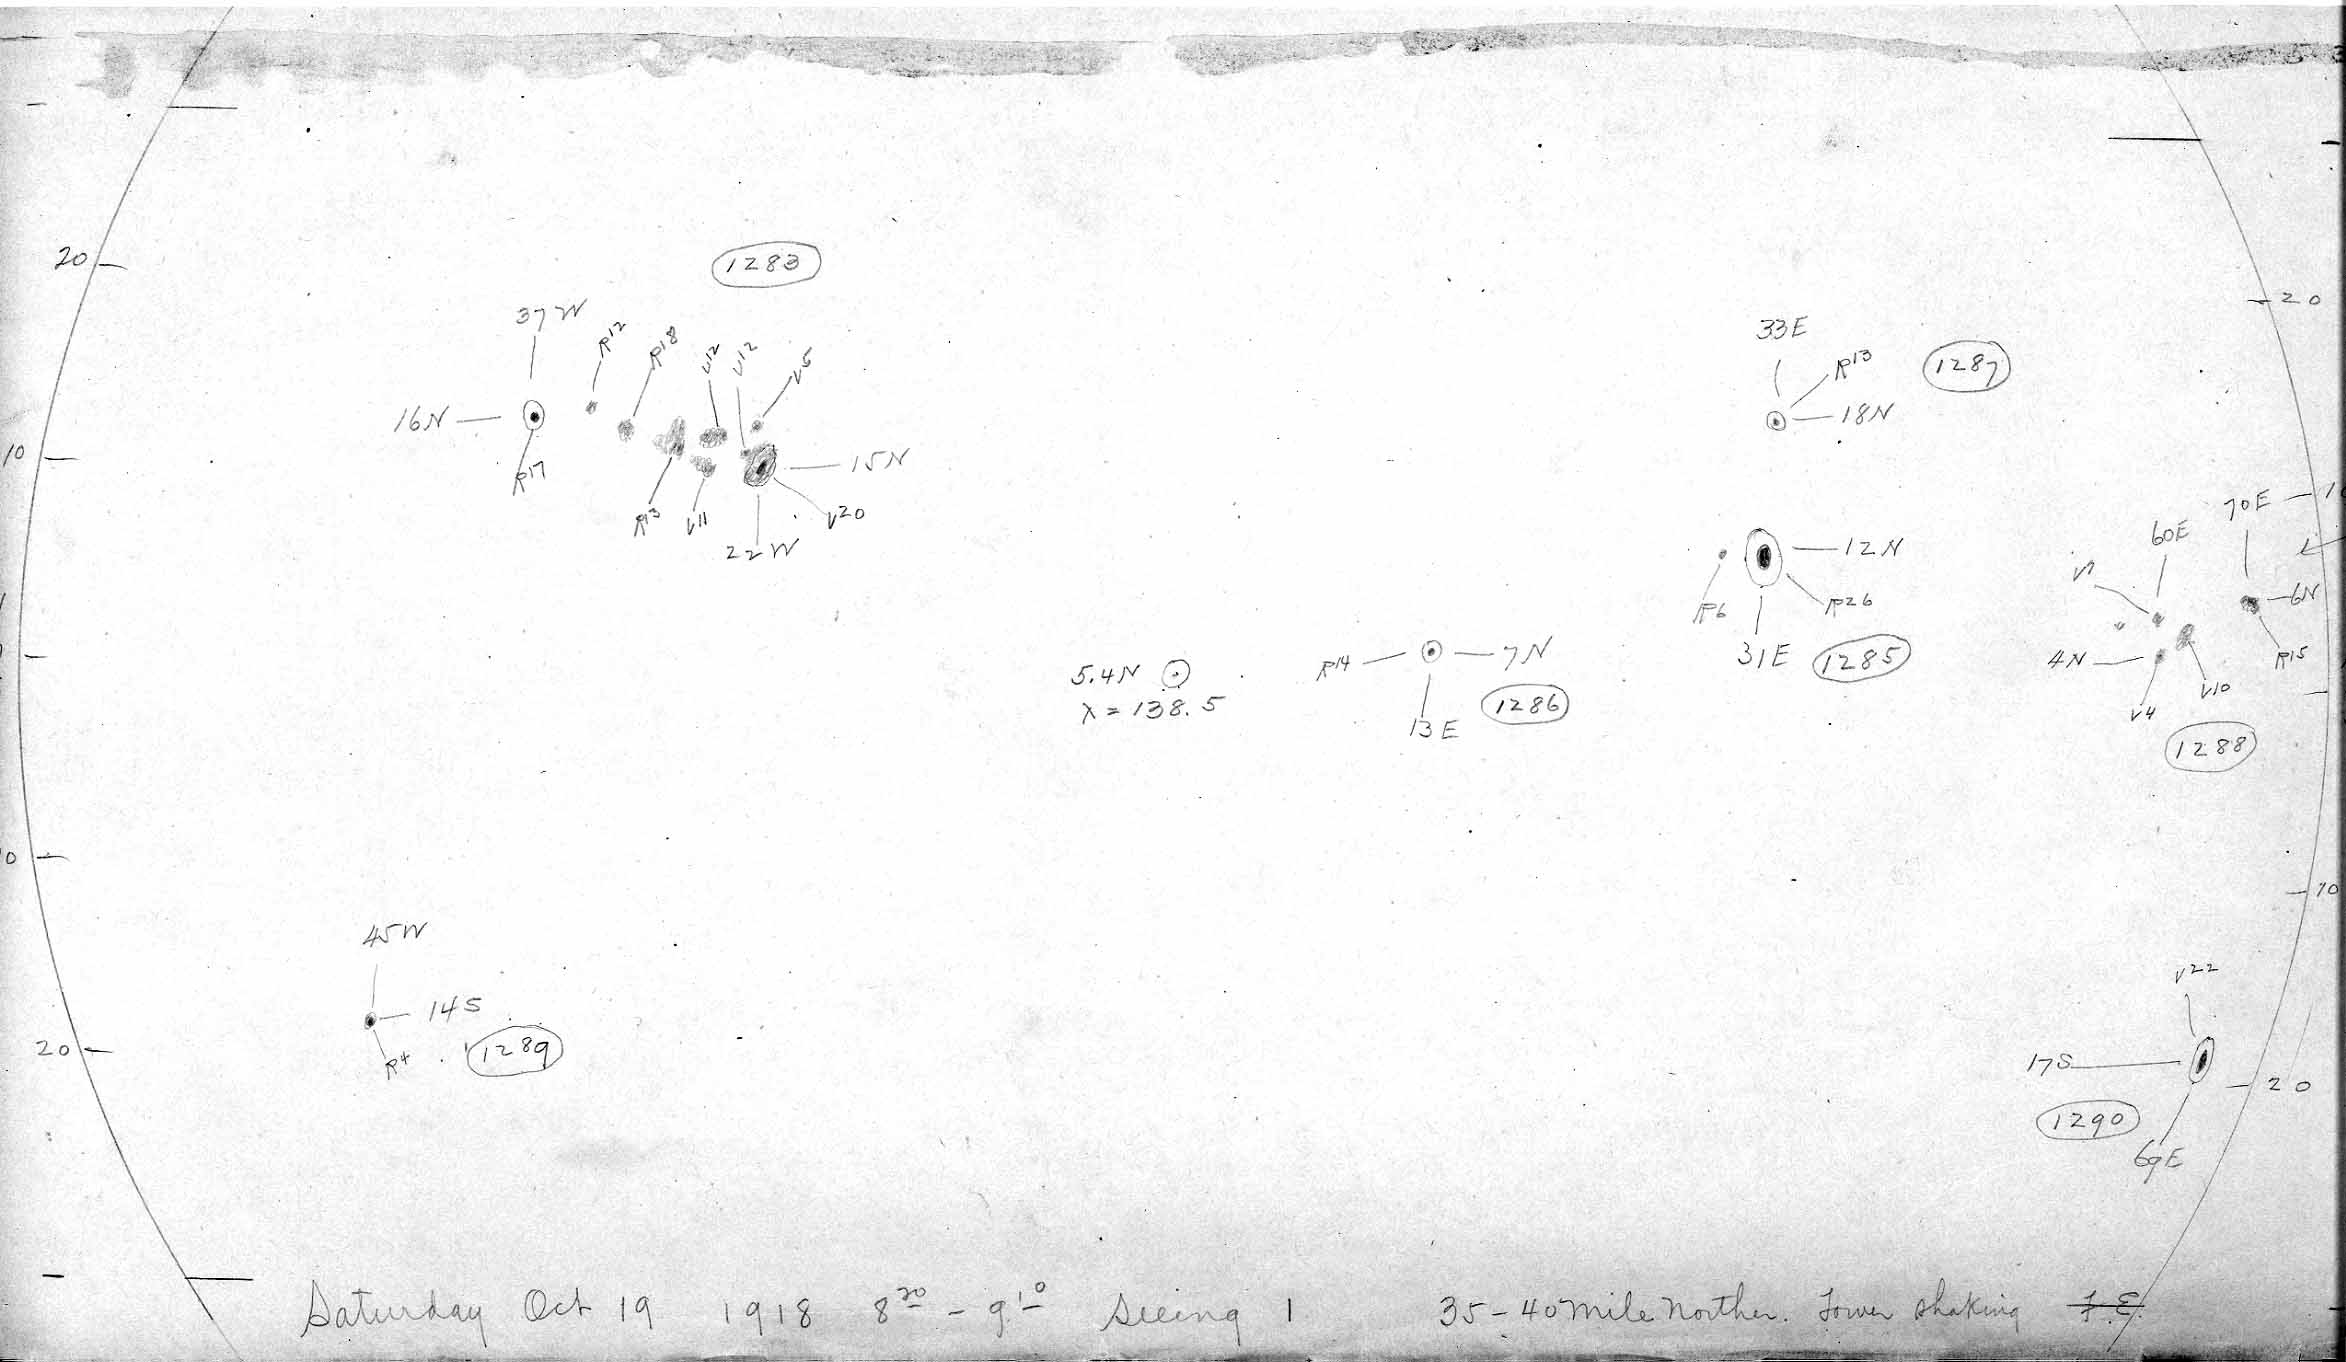 20
1283
37W
R12
R18
V12
V12
V5
16N
R17
10
R13
V11
15N
V20
22W
33E
R13
1287
18N
20
12N
R6
R26
31E
1285
70E
60E
V7
6N
4N
R15
V10
V4
1288
5.4N
λ = 138.5
R14
7N
13E
1286
0
10
45W
14S
R4
1289
20
V22
17S
20
1290
69E
Saturday Oct 19 1918 8 20 - 9 10 Seeing 1 35-40 mile Norther. Tower shaking F.E.